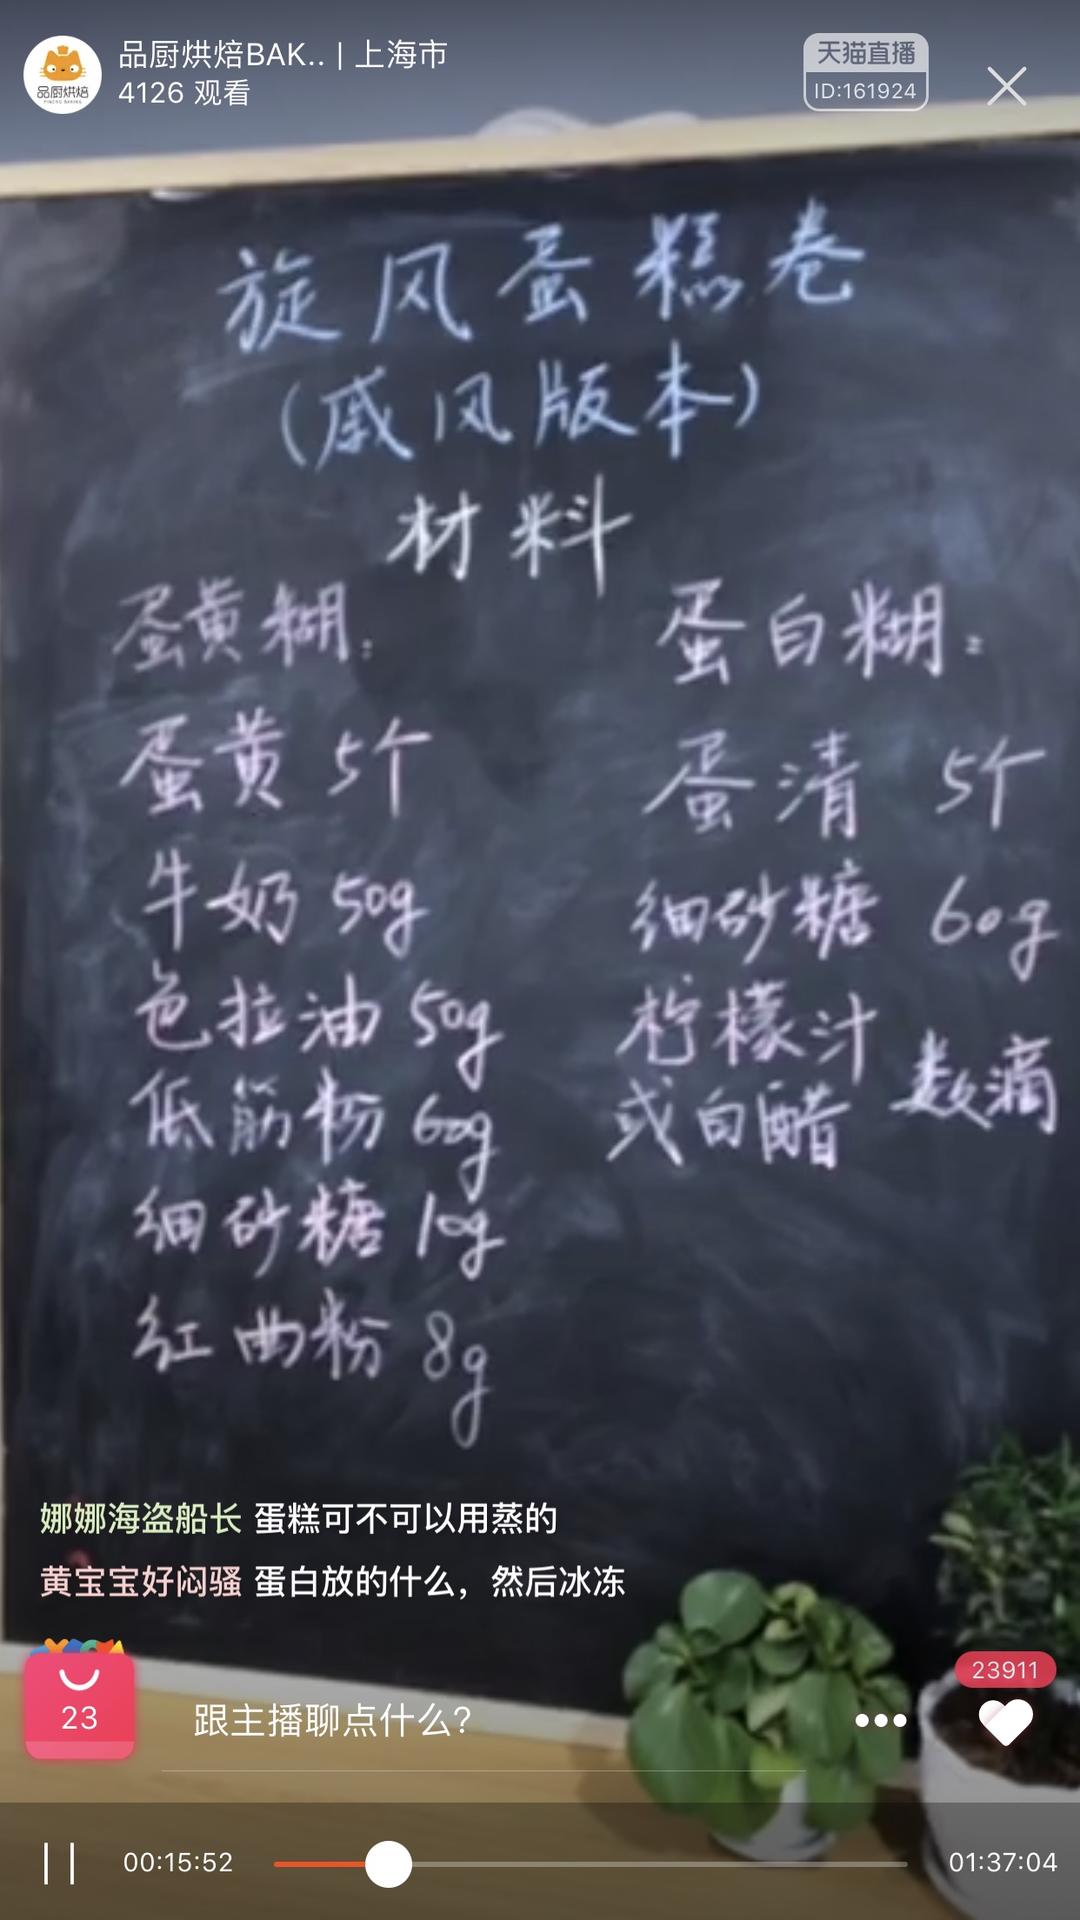 品厨烘焙BAK.. | 上海市
4126 观看
天猫直播
ID:161924
品厨烘焙
PINCHU BAKING
旋风蛋糕卷
(戚风版本)
材料
蛋黄糊:
蛋黄 5个
牛奶 50g
色拉油 50g
低筋粉 60g
细砂糖 10g
红曲粉 8g
蛋白糊:
蛋清 5个
细砂糖 60g
柠檬汁
或白醋 数滴
娜娜海盗船长 蛋糕可不可以用蒸的
黄宝宝好闷骚 蛋白放的什么，然后冰冻
23
跟主播聊点什么?
23911
00:15:52
01:37:04